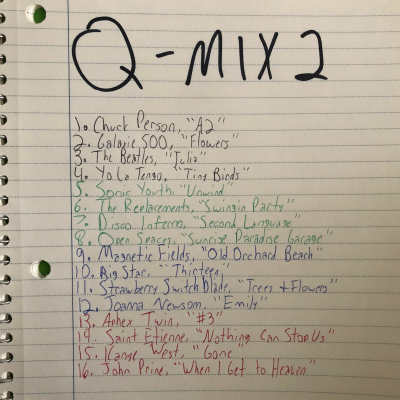 Q-MIX 2
1. Chuck Person, "A2"
2. Galaxie 500, "Flowers"
3. The Beatles, "Julia"
4. Yo La Tengo, "Tiny Birds"
5. Sonic Youth, "Unwind"
6. The Replacements, "Swingin Party"
7. Disco Inferno, "Second Language"
8. Open Spaces, "Sunrise Paradise Garage"
9. Magnetic Fields, "Old Orchard Beach"
10. Big Star, "Thirteen"
11. Strawberry Switchblade, "Trees + Flowers"
12. Joanna Newsom, "Emily"
13. Aphex Twin, "#3"
14. Saint Etienne, "Nothing Can Stop Us"
15. Kanye West, "Gone"
16. John Prine, "When I Get to Heaven"